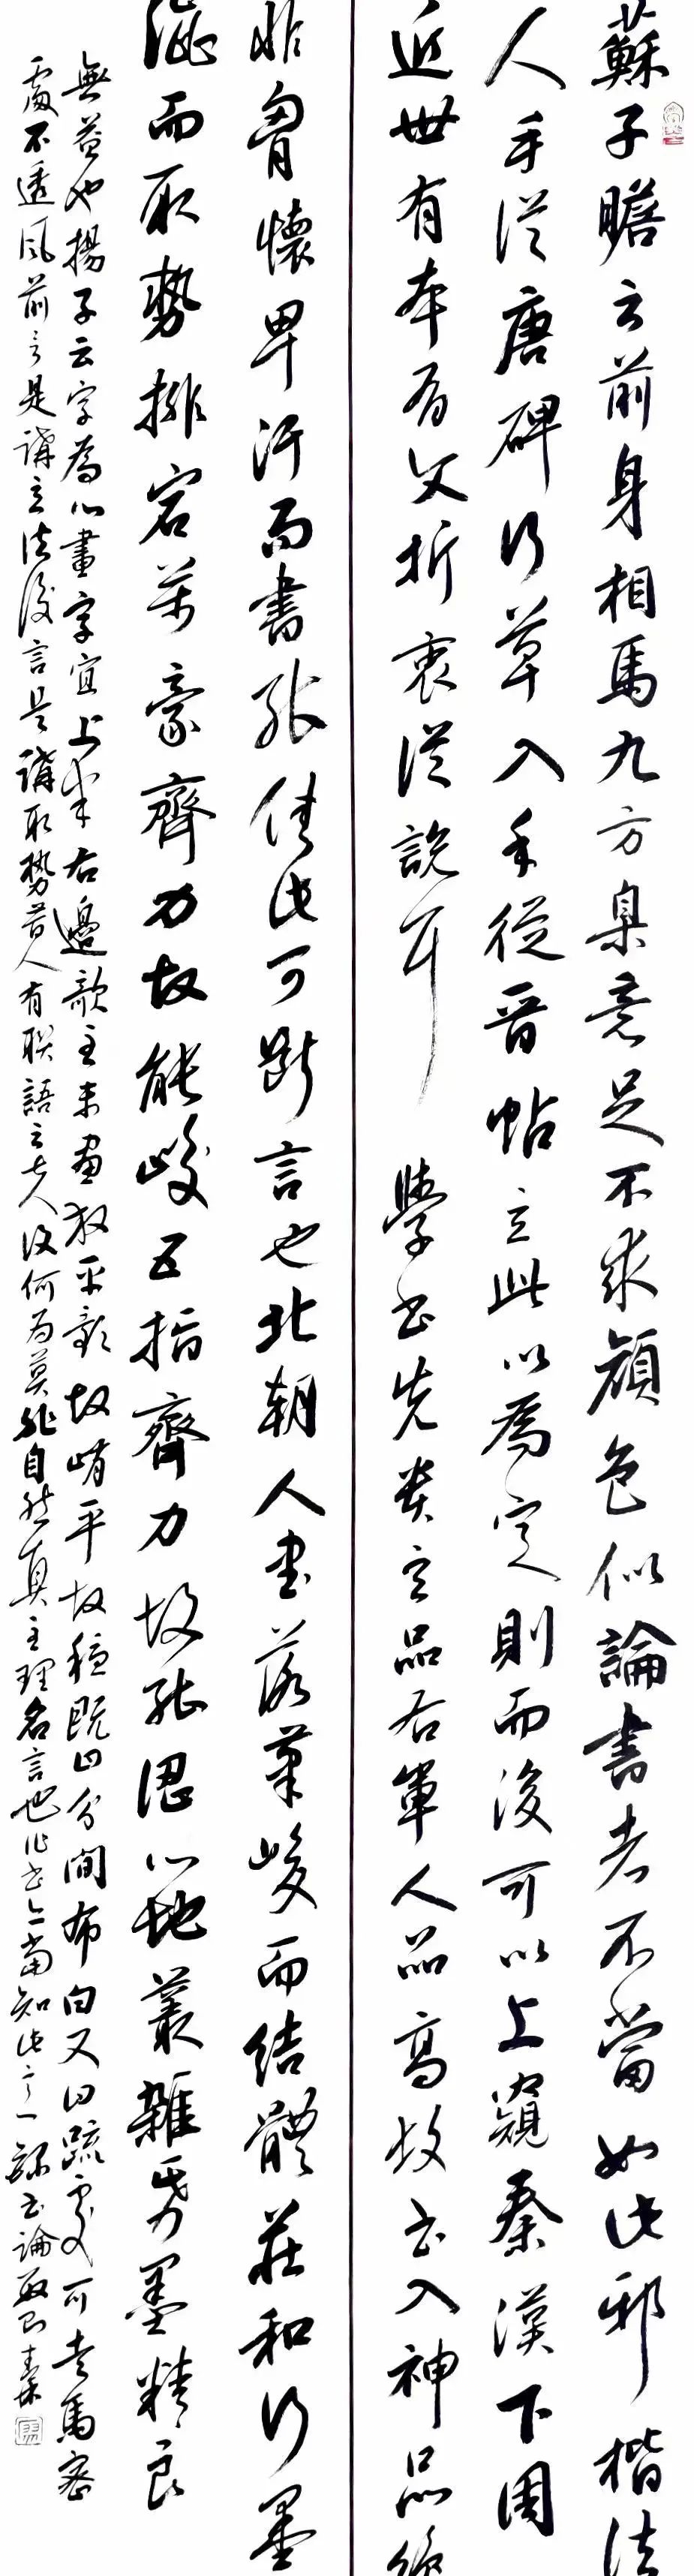 蘇子瞻云前身相馬九方臯意足不求顏色似論書者不當如此邪楷法
入手從唐碑行草入手從晉帖立此以為定則而後可以上窺秦漢下周
近世有本有文折衷從說耳 學書先貴立品右軍人品高故書入神品
非胷懷卑汙而書能佳此可斷言也北朝人書落筆峻而結體莊和行墨
澀而取勢排宕萬豪齊力故能峻五指齊力故能澀心地叢雜雖筆墨精良
無益也揚子云字為心畫字宜上半右邊末畫放平故峭平故穩既曰分間布白又曰疏處可走馬密
處不透風前言是講立法後言是講取勢昔人有聯語云人復何為莫非自然真理名言也作書亦當知此錄書論數則